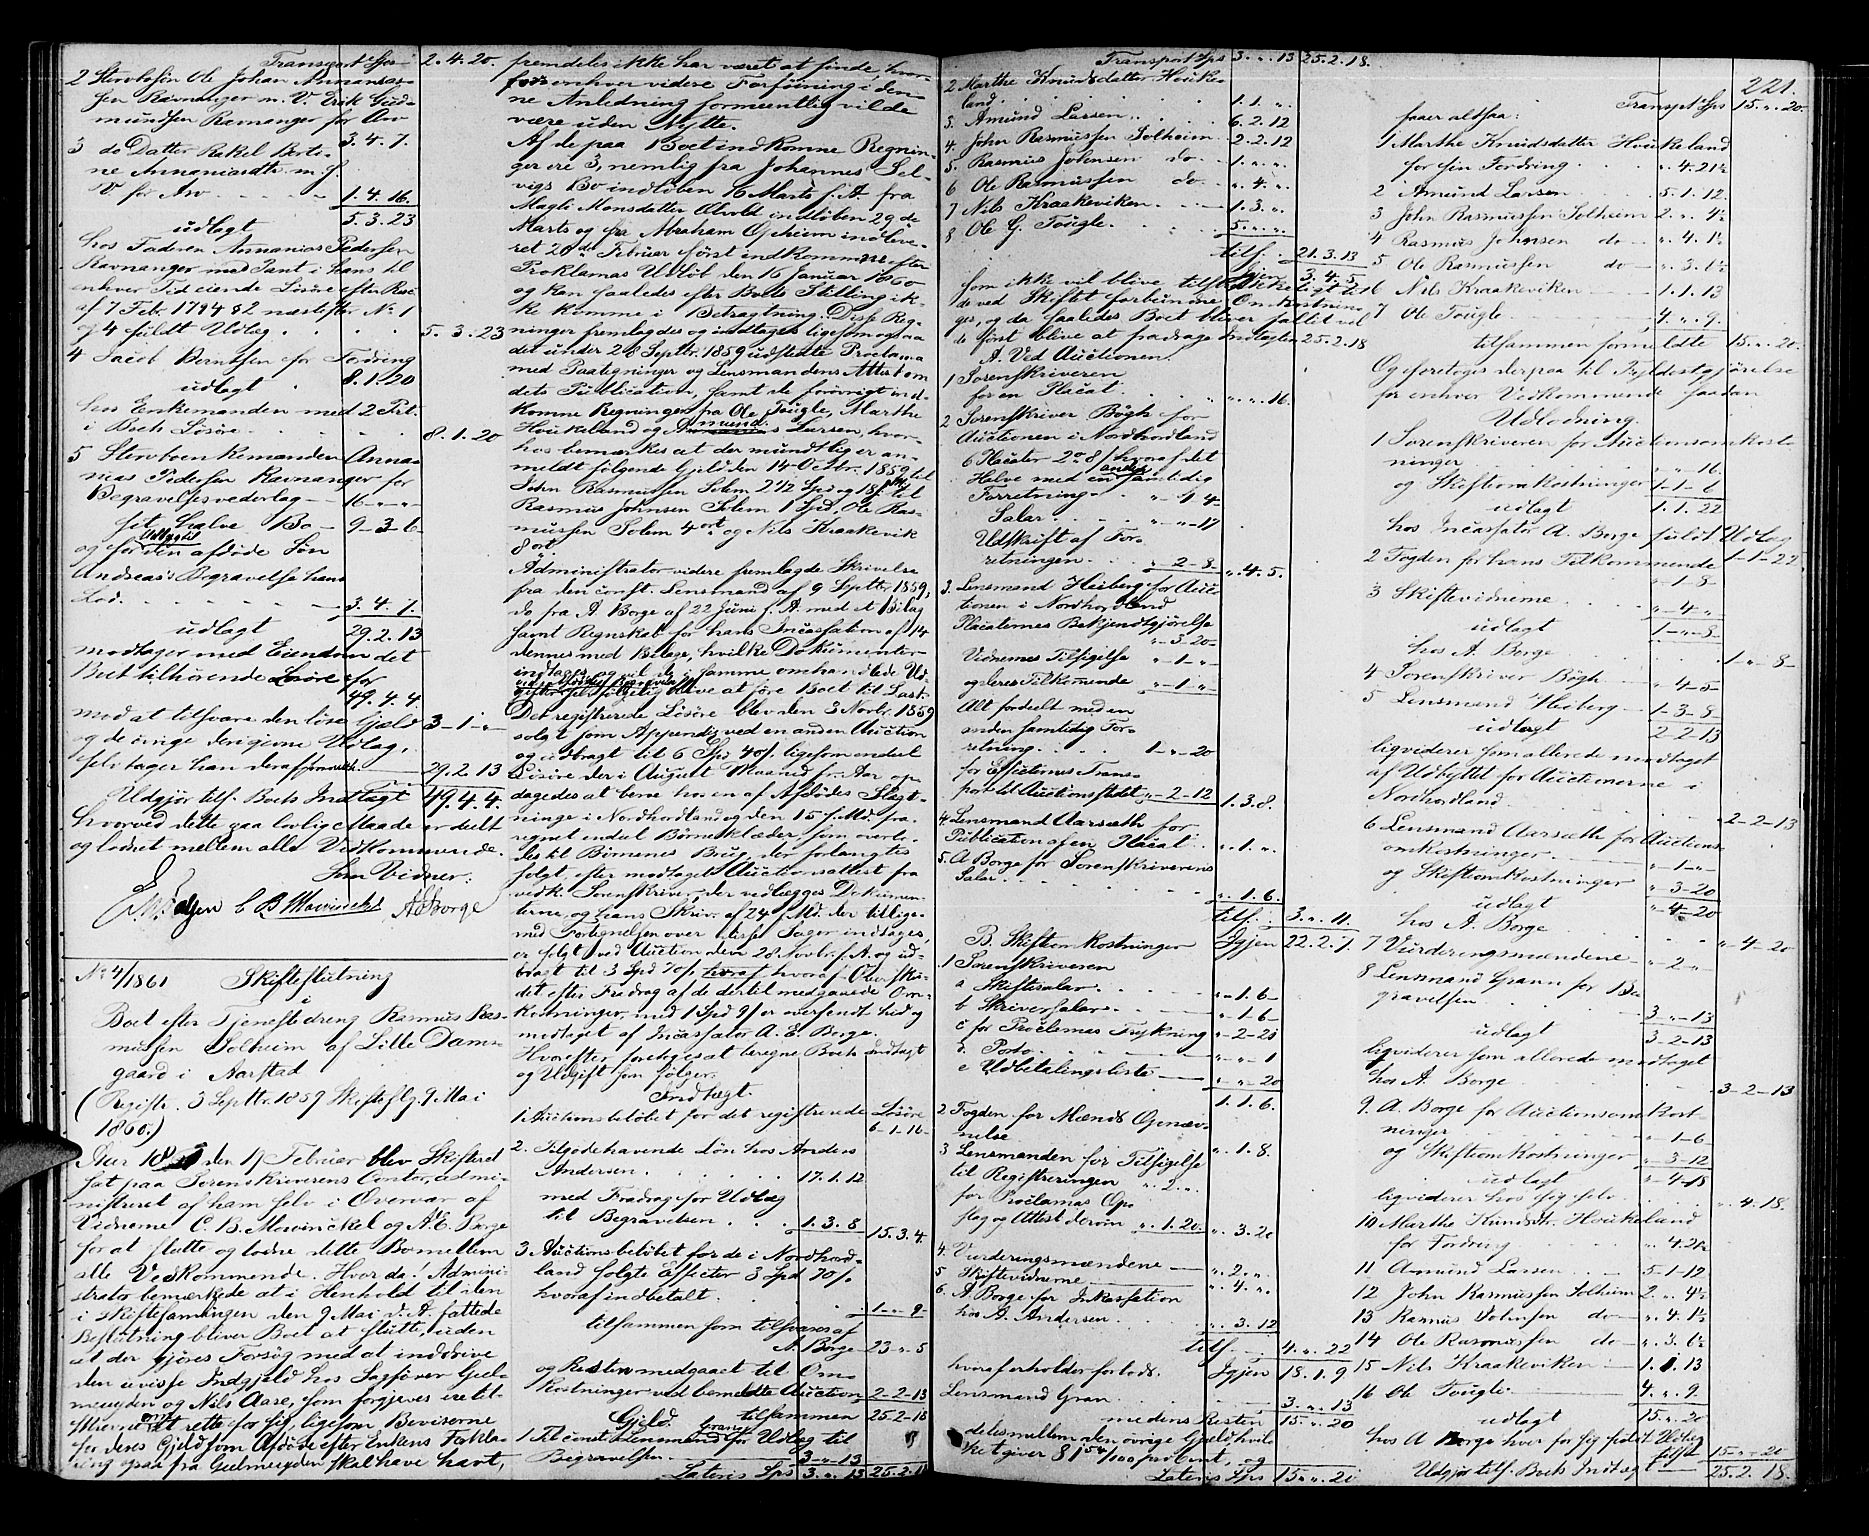 Transport Sps 2. 4. 20.
2 Stervbosøn Ole Johan Annanias-
sen Ravnanger m. V. Erik Gud-
mundsen Ravnanger for Arv
3. 4. 7.
3 do Datter Rakel Berti-
ne Annaniasdtr m. s.
V for Arv 1. 4. 16.
5. 3. 23
udlagt
hos Faderen Annanias Pedersen
Ravnanger med Pant i hans til
enhver Tid eiende Løsøre efter
af 7 Febr. 1794 § 2 næstefter No 1
og 4 fuldt Udlæg. 5. 3. 23
4 Jacob Berntsen for Fordring
8. 1. 20
udlagt
hos Enkemanden med 2 Prt.
i Boets Løsøre 8. 1. 20
5 Stervboenkemanden Anna-
nias Pedersen Ravnanger for
Begravelsesvederlag 16 „ „
sit halve Bo 9-3-6
Udlæg til
og for den afdøde Søn
Andreas's Begravelse hans
Lod. 3. 4. 7.
udlagt 29. 2. 13
modtager med Eiendom det
Boet tilhørende Løsøre for
49. 4. 4
mod at tilsvare den løse Gjæld 3-1-„
og de øvrige dengivne Udlæg,
selv tager han deraf 29. 2. 13
Udgjør tils. Boets Indtægt 49. 4. 4.
hvorved dette paa lovlig Maade er deelt
og lodnet mellem alle Vedkommende.
Som Vidner:
C B Mowinckel A E Borge
No 4/1861 Skifteslutning
i
Boet efter Tjenestedreng Rasmus Ras-
mussen Solheim af Lille Dams-
gaard i Aarstad
(Registr. 3 Septtr. 1859 Skiftesslg. 9 Mai
1860.)
Aar 18 den 19 Februar blev Skifteret
sat paa Sorenskriverens Contor, admi-
nistreret af ham selv i Overvær af
Vidnerne C. B. Mowinckel og A. E. Borge
for at slutte og lodne dette Bo mellem
alle Vedkommende. Hvorda! Admini-
strator bemærkede at i Henhold til den
i Skiftesamlingen den 9 Mai d. A. fattede
Beslutning bliver Boet at slutte, uden
at der gjøres Forsøg med at inddrive
den uvisse Indgjeld hos Sagfører Geel-
meyden og Nils Aase, som forgjeves
for deres Gjeld som Afdøde efter Enkens Forkla-
ring ogsaa fra Geelmeyden skal have havt,
fremdeles ikke har været at finde, hvor-
for enhver videre Forføining i den-
ne Anledning formeentlig vilde
være uden Nytte.
Af de paa Boet indkomne Regnin-
ger ere 3, nemlig fra Johannes Sel-
vigs Bo indløben 16 Marts f. A. fra
Magli Monsdatter Alvold indløben 29de
Marts og fra Abraham Opheim indleve-
ret 20de Februar først indkomne efter
Proklamas Udløb den 16 Januar 1860
og kan saaledes efter Boets Stilling ik-
ke komme i Betragtning. Disse Reg-
ninger fremlagdes og indtages ligesom ogsaa
det under 28 Septtr. 1859 udstedte Proclama
med Paategninger og Lensmandens Attest om
dets Publication, samt de forøvrigt ind-
komne Regninger fra Ole Tougle, Marthe
Houkeland og Amund Larsen, hvor-
hos bemærkes at der mundtlig er an-
meldt følgende Gjeld den 14 Octbr. 1859 til
John Rasmussen Solem 2 1/2 Spd og 18 s til
Rasmus Johnsen Solem 1 Spd, Ole Ras-
mussen Solem 4 ort og Nils Kraakevik
8 ort.
Administrator videre fremlagde Skrivelse
fra den const. Lensmand af 9 Septtr. 1859,
do fra A. Borge af 22 Juni f. A. med et Bilag
samt Regnskab for hans Incassation af 14
dennes med Bilage, hvilke Dokumenter
indtages og vil de i samme omhandlede Ud-
gifter selvfølgelig blive at føre Boet til Last.
Det registrerede Løsøre blev den 3 Novbr. 1859
solgt som Appendix ved en anden Auction
og udbragt til 6 Spd 40 s, ligesom endeel
Løsøre der i August Maaned for. Aar op-
dagedes at bero hos en af Afdødes Slægt-
ninge i Nordhordland og den 15 s. Md. fra-
regnet endel Børneklæder som overlo-
des til Børnenes Brug, der forlangtes
solgt, efter modtaget Auctionsattest fra
vedk. Sorenskriver, der vedlægges Dokumen-
terne, og hans Skriv. af 24 s. Md. der tillige-
med Fortegnelsen over disse Sager indtages,
er solgt ved Auction den 28 Novbr. f. A. og ud-
bragt til 3 Spd 70 s, hvoraf Overskud-
det efter Fradrag af de dertil medgaaede Om-
kostninger, med 1 Spd 9 s er oversendt hid og
modtaget af Incassator A. E. Borge.
Hvorefter foretoges at beregne Boets Indtægt
og Udgift som følger.
Indtægt.
1. Auctionsbeløbet for det registrerede Løsøre
6-1-16
2. Tilgodehavende Løn hos Anders
Andersen. 17. 1. 12
med Fradrag for Udlæg
til Begravelsen. 1. 3. 8 15. 3. 4.
3. Auctionsbeløbet for de i Nordhord-
land solgte Effecter 3 Spd 70 s
hvoraf indbetalt. 1-„-9
tilsammen som tilsvares af
A. Borge 23-„-5
og Resten medgaaet til Om-
kostninger ved bemeldte Auction 2-2-13
tilsammen 25-2-18
Gjeld.
1 Til const. Lensmand Grann for Udlæg til
Begravelsen 3-„-13
Lateris Sps 3. „. 13 25. 2. 18
Transport Sps 3. „. 13 25. 2. 18.
2 Marthe Knudsdatter Houke-
land 1. 1. „.
3. Amund Larsen 6. 2. 12
4. John Rasmussen Solheim 2. 2. 12
5. Rasmus Johnsen do 1. „. „.
6 Ole Rasmussen do „. 4. „.
7 Nils Kraakeviken 1. 3. „.
8 Ole G. Tougle. 5. „. „.
tils. 21. 3. 13
Igjen 3. 4. 5
som ikke vil blive tilstrækkeligt til
de ved Skiftet forbundne Omkostnin-
ger, og da saaledes Boet bliver fallit vil
de først blive at fradrage Indtægten 25. 2. 18
A. Ved Auctionen.
1 Sorenskriveren
for en Placat. „. „. 16.
2 Sorenskriver Bøgh for
Auctionen i Nordhordland
6 Placater 2 ort 8 s hvoraf det
Halve med en anden samtidig
Forretning „-1-4
Salar „-„-17
Udskrift af For-
retningen. „-2-8 „. 4. 5.
3. Lensmand Heiberg for Auc-
tionen i Nordhordland
Placaternes Bekjendtgjørelse
„-3-20
Vidnernes Tilsigelse „-1-„
og deres Tilkomende „-1-„
Alt fordeelt med en
anden samtidig For-
retning. 1-„-20
for Effecternes Trans-
port til Auctionsstedet „-2-12 1. 3. 8.
4. Lensmand Aarsæth for
Publication af en Placat „. 1. „.
5. A Borge for Sorenskriverens
Salar. „. 1. 6.
tils. 3. „. 11.
B. Skifteomkostninger Igjen 22. 2. 7.
1 Sorenskriveren
a Skiftesalar „-1-6
b Skriversalar „-1-6
c for Proclamas Trykning „-2-23
d. Porto „-„-1
e Udbetalingsliste „-„-20
1. 1. 6.
2 Fogden for Mænds Opnæv-
nelse „. 1. 8.
3 Lensmanden for Tilsigelse
til Registreringen „. 2. „.
for Proclamas Op-
slag og Attest derom „. 1. 20. „. 3. 20
4. Vurderingsmændene „. 2. „.
5 Skiftevidnerne „. 4. „.
6. A. Borge for Inkassation
hos A. Andersen „. 3. 12
tils. 4. „. 22
hvoraf erholder forlods. Igjen 18. 1. 9
Lensmand Gran 3. „. 13
medens Resten 15. „. 20
deles mellem den øvrige Gjeld hvil-
ket giver 81 54/100 procent, og
Lateris Sps 15. „. 20
221.
Transpt Sps 15. „. 20.
faaer altsaa:
1 Marthe Knudsdatter Houkeland
for sin Fordring „. 4. 21½
2 Amund Larsen 5. 1. 12.
3 John Rasmussen Solheim 2. „. 4½
4 Rasmus Johnsen do „. 4. 1½
5 Ole Rasmussen do „. 3. 1½
6 Nils Kraakeviken 1. 1. 13
7 Ole Tougle 4. „. 9.
tilsammen formeldte 15. „. 20.
Og foretoges derpaa til Fyldestgjørelse
for enhver Vedkommende saadan
Udlodning.
1 Sorenskriveren for Auctionsomkost-
ninger „-„-16.
og Skifteomkostninger 1-1-6
udlagt 1. 1. 22
hos Incassator A. Borge fuldt Udlæg
1-1-22
2 Fogden for hans Tilkommende
„-1-8
3 Skiftevidnerne „-4-„
udlagt 1-„-8
hos A. Borge 1 „ 8
4 Sorenskriver Bøgh „-4-5
5 Lensmand Heiberg 1-3-8
udlagt 2-2-13
ligviderer som allerede modtaget
af Udbyttet for Auctionerne i
Nordhordland 2-2-13
6 Lensmand Aarsæth for Auctions-
omkostninger „-1-„
og Skifteomkostninger „. 3-20
udlagt „-4-20
hos A. Borge „-4-20
7 Vurderingsmændene „-2-„
8 Lensmand Grann for Be-
gravelsen 3 „-13
udlagt 3-2-13
ligviderer som allerede modtaget
hos A. Borge 3-2-13
9. A. Borge for Auctionsomkost-
ninger „-1-6
og Skifteomkostninger „-3-12
udlagt „-4-18
ligviderer hos sig selv „. 4. 18.
10 Marthe Knudsdtr. Houkeland
for Fordring „. 4. 21½
11 Amund Larsen 5-1-12
12 John Rasmussen Solheim 2. „. 4½
13 Rasmus Johnsen do „. 4. 1½
14 Ole Rasmussen do „. 3. 1½
15 Nils Kraakeviken 1. 1. 13
16 Ole Tougle 4. „. 9
udlagt 15. „. 20
hos A Borge hver for sig fuldt Udlæg
tilst 15-„-20
Udgjør tils. Boets Indtægt 25. 2. 18.